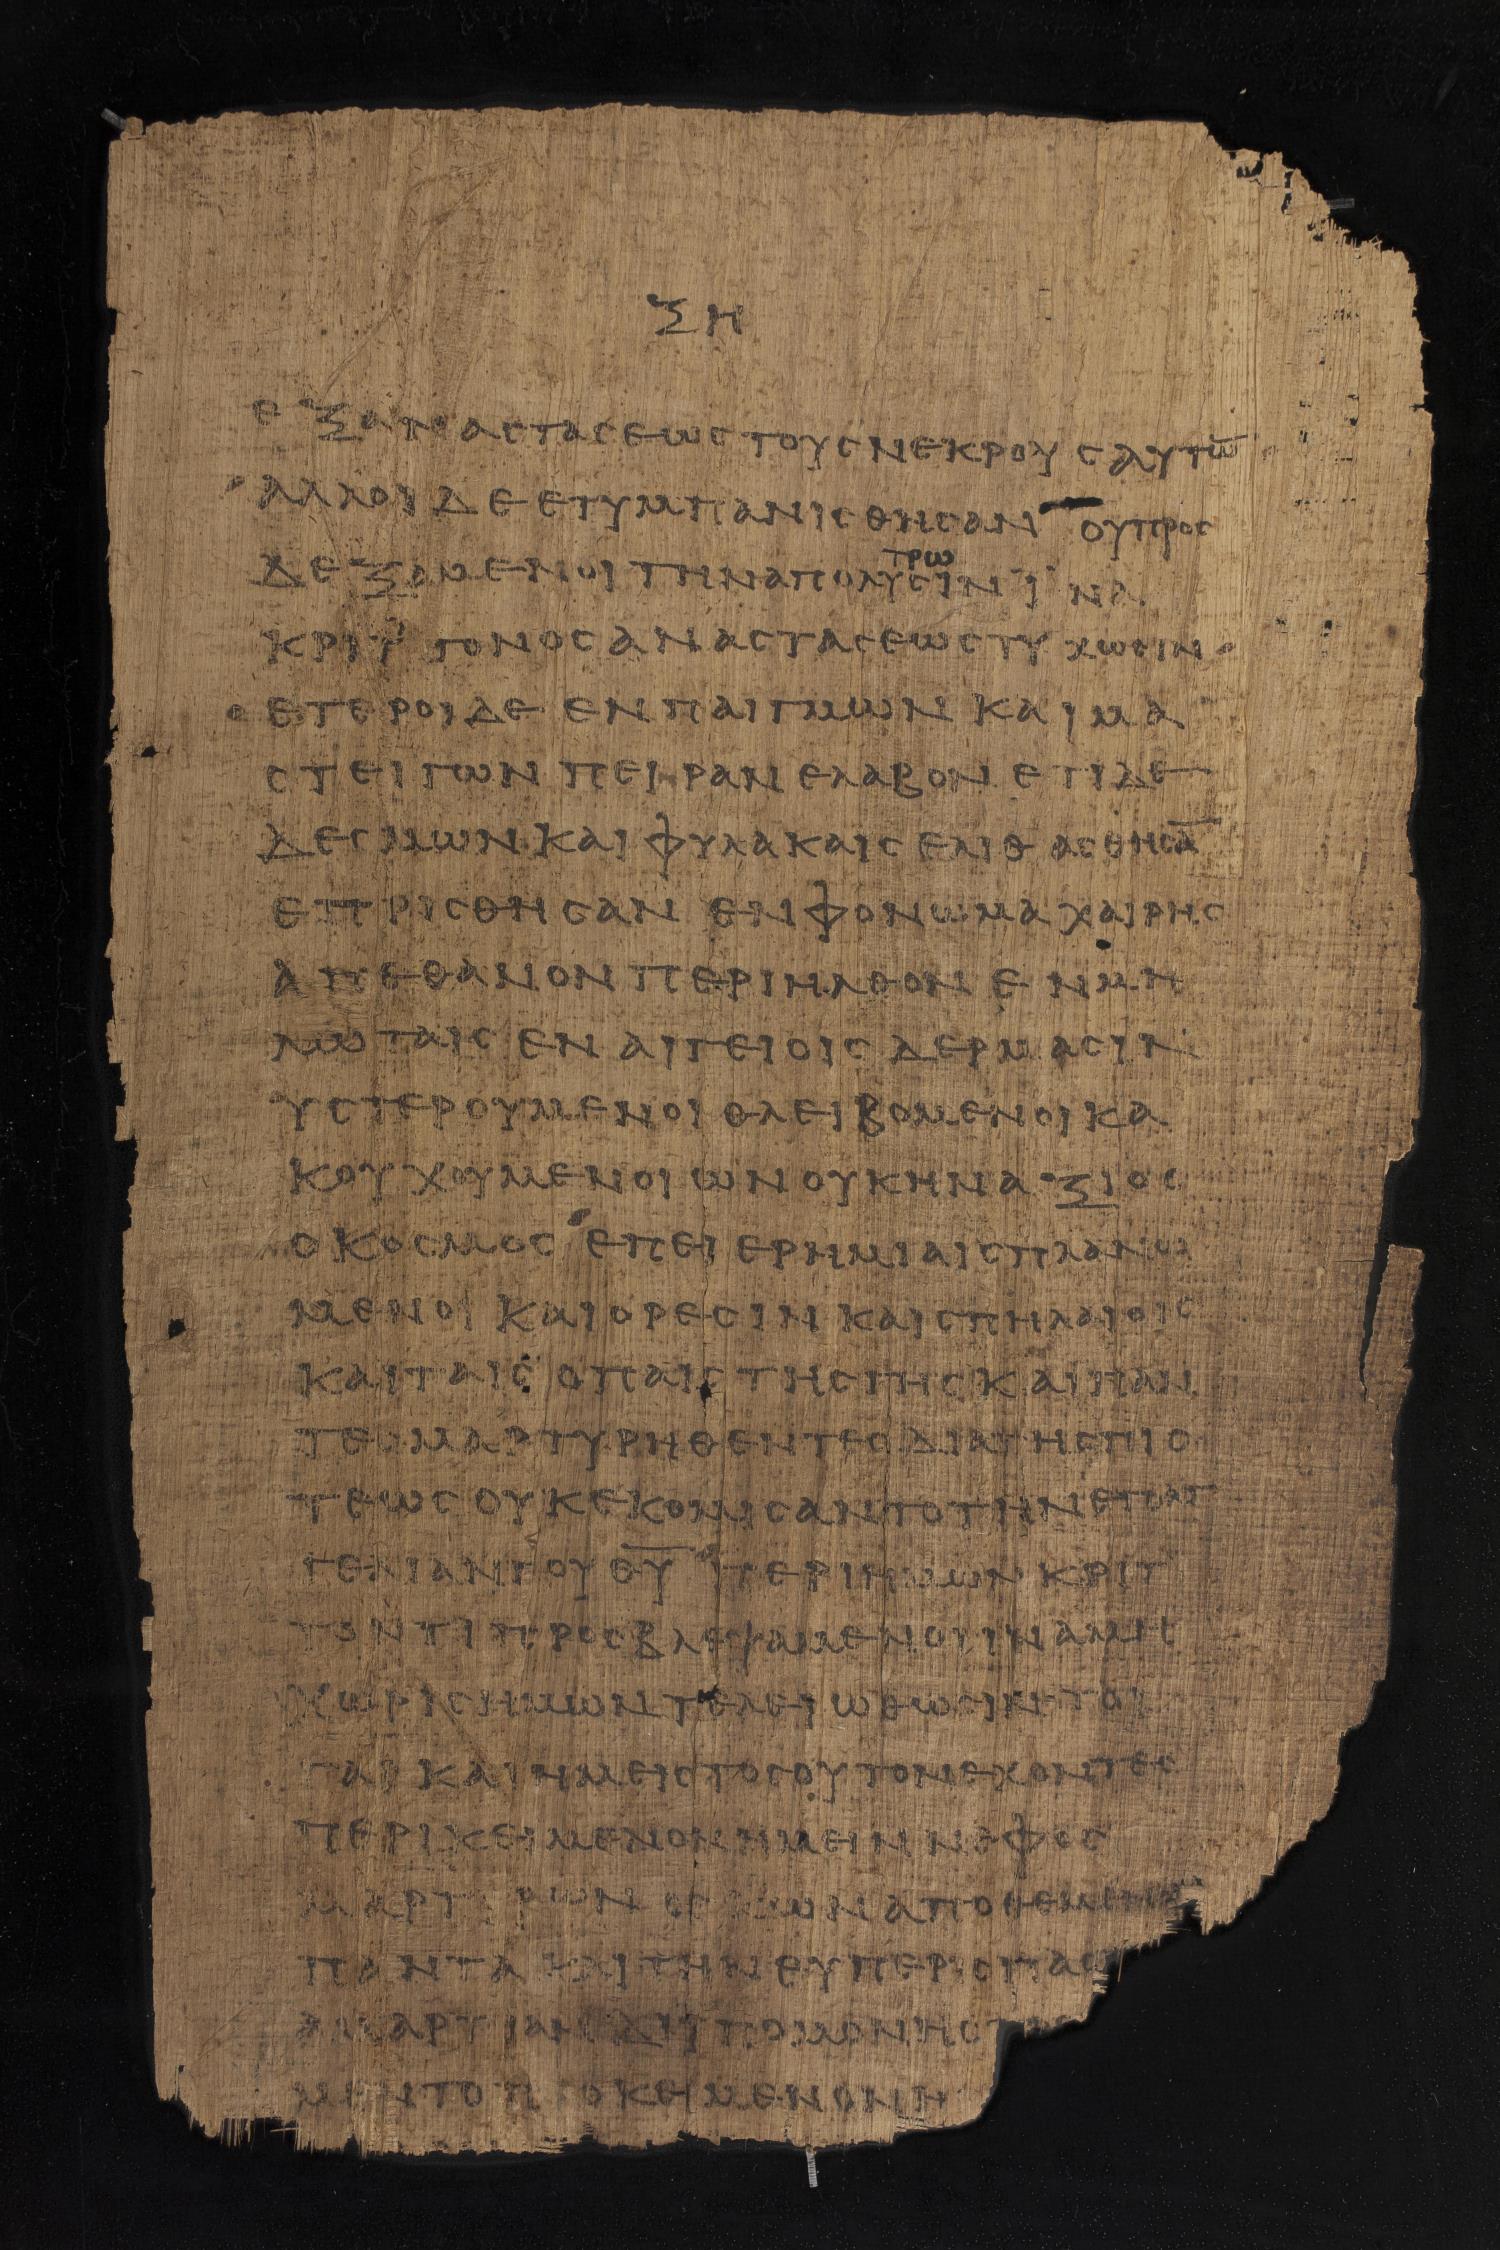 ΞΗ
ΕΞΑΝΑΣΤΑΣΕΩΣ ΤΟΥΣ ΝΕΚΡΟΥΣ ΑΥΤΩ̅
ΑΛΛΟΙ ΔΕ ΕΤΥΜΠΑΝΙΣΘΗΣΑΝ ΟΥ ΠΡΟΣ
ΤΡΩ
ΔΕΞΑΜΕΝΟΙ ΤΗΝ ΑΠΟΛΥΣΙΝ ΪΝΑ
ΚΡΙΤΤΟΝΟΣ ΑΝΑΣΤΑΣΕΩΣ ΤΥΧΩΣΙΝ
ΕΤΕΡΟΙ ΔΕ ΕΝΠΑΙΓΜΩΝ ΚΑΙ ΜΑ
ΣΤΕΙΓΩΝ ΠΕΙΡΑΝ ΕΛΑΒΟΝ ΕΤΙ ΔΕ
ΔΕΣΜΩΝ ΚΑΙ ΦΥΛΑΚΑΙΣ ΕΛΙΘΑΣΘΗΣΑ̅
ΕΠΡΙΣΘΗΣΑΝ ΕΝ ΦΟΝΩ ΜΑΧΑΙΡΗΣ
ΑΠΕΘΑΝΟΝ ΠΕΡΙΗΛΘΟΝ ΕΝ ΜΗ
ΛΩΤΑΙΣ ΕΝ ΑΙΓΕΙΟΙΣ ΔΕΡΜΑΣΙΝ
ΥΣΤΕΡΟΥΜΕΝΟΙ ΘΛΕΙΒΟΜΕΝΟΙ ΚΑ
ΚΟΥΧΟΥΜΕΝΟΙ ΩΝ ΟΥΚ ΗΝ ΑΞΙΟΣ
Ο ΚΟΣΜΟΣ ΕΠΕΙ ΕΡΗΜΙΑΙΣ ΠΛΑΝΩ
ΜΕΝΟΙ ΚΑΙ ΟΡΕΣΙΝ ΚΑΙ ΣΠΗΛΑΙΟΙΣ
ΚΑΙ ΤΑΙΣ ΟΠΑΙΣ ΤΗΣ ΓΗΣ ΚΑΙ ΠΑΝ
ΤΕΣ ΜΑΡΤΥΡΗΘΕΝΤΕΣ ΔΙΑ ΤΗΣ ΠΙΣ
ΤΕΩΣ ΟΥΚ ΕΚΟΜΙΣΑΝΤΟ ΤΗΝ ΕΠΑΓ
ΓΕΛΙΑΝ ΤΟΥ Θ̅Υ̅ ΠΕΡΙ ΗΜΩΝ ΚΡΙΤ
ΤΟΝ ΤΙ ΠΡΟΣΒΛΕΨΑΜΕΝΟΥ ΙΝΑ ΜΗ
ΧΩΡΙΣ ΗΜΩΝ ΤΕΛΕΙΩΘΩΣΙΝ ΤΟΙ
ΓΑΡ ΚΑΙ ΗΜΕΙΣ ΤΟΣΟΥΤΟΝ ΕΧΟΝΤΕΣ
ΠΕΡΙΚΕΙΜΕΝΟΝ ΗΜΕΙΝ ΝΕΦΟΣ
ΜΑΡΤΥΡΩΝ ΟΓΚΩΝ ΑΠΟΘΕΜΕΝΟΙ
ΠΑΝΤΑ ΚΑΙ ΤΗΝ ΕΥΠΕΡΙΣΠΑΣ
ΑΜΑΡΤΙΑΝ ΔΙ ΥΠΟΜΟΝΗΣ Τ
ΜΕΝ ΤΟΝ ΠΡΟΚΕΙΜΕΝΟΝ Η